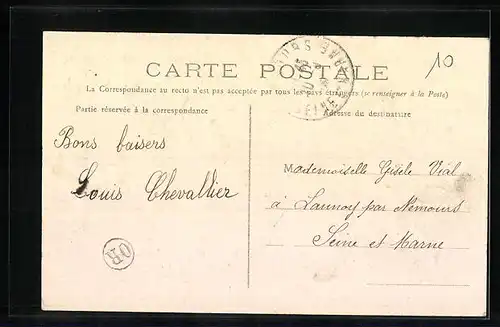 CARTE POSTALE
10
La Correspondance au recto n'est pas acceptée par tous les pays étrangers (se renseigner à la Poste)
Partie réservée à la correspondance
Adresse du destinataire
Bons baisers
Louis Chevallier
Mademoiselle Gisèle Vial
à Launoy par Nemours
Seine et Marne
OR